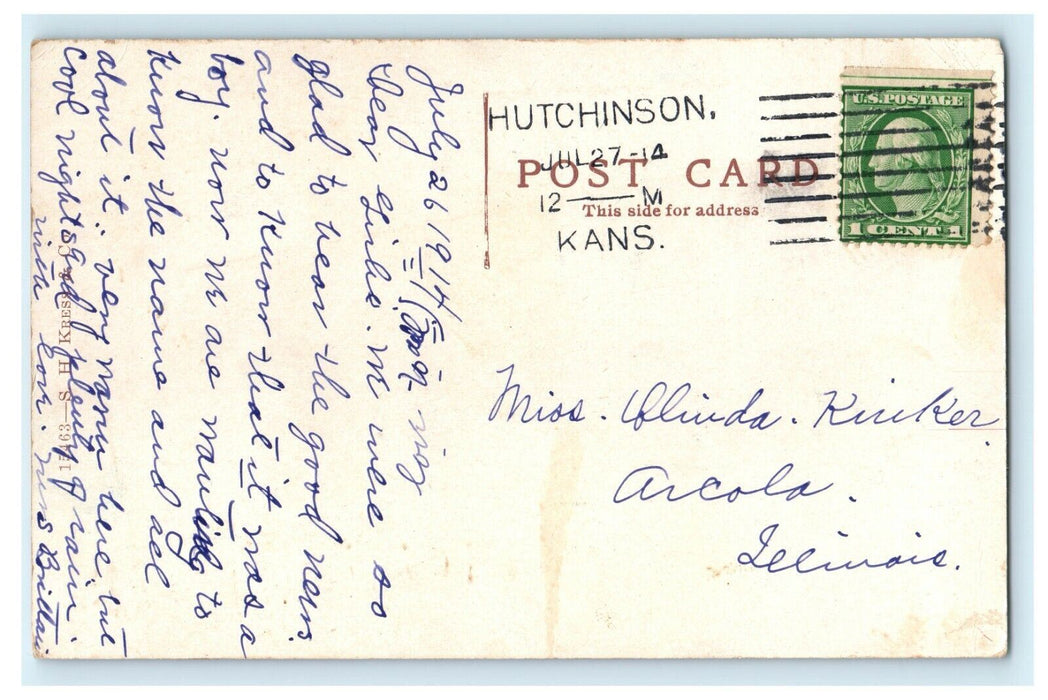 July 26 1914
Dear Girls. we were so
glad to hear the good news
and to know that it was a
boy. now we are wanting to
know the name and all
about it. very warm here but
cool nights and plenty of rain.
with love. Mrs Brittain
15463—S. H. KRESS & CO.
HUTCHINSON,
JUL 27-14
12 — M
KANS.
POST CARD
This side for address
U.S. POSTAGE
1 CENT 1
Miss. Olinda. Kinker
Arcola.
Illinois.